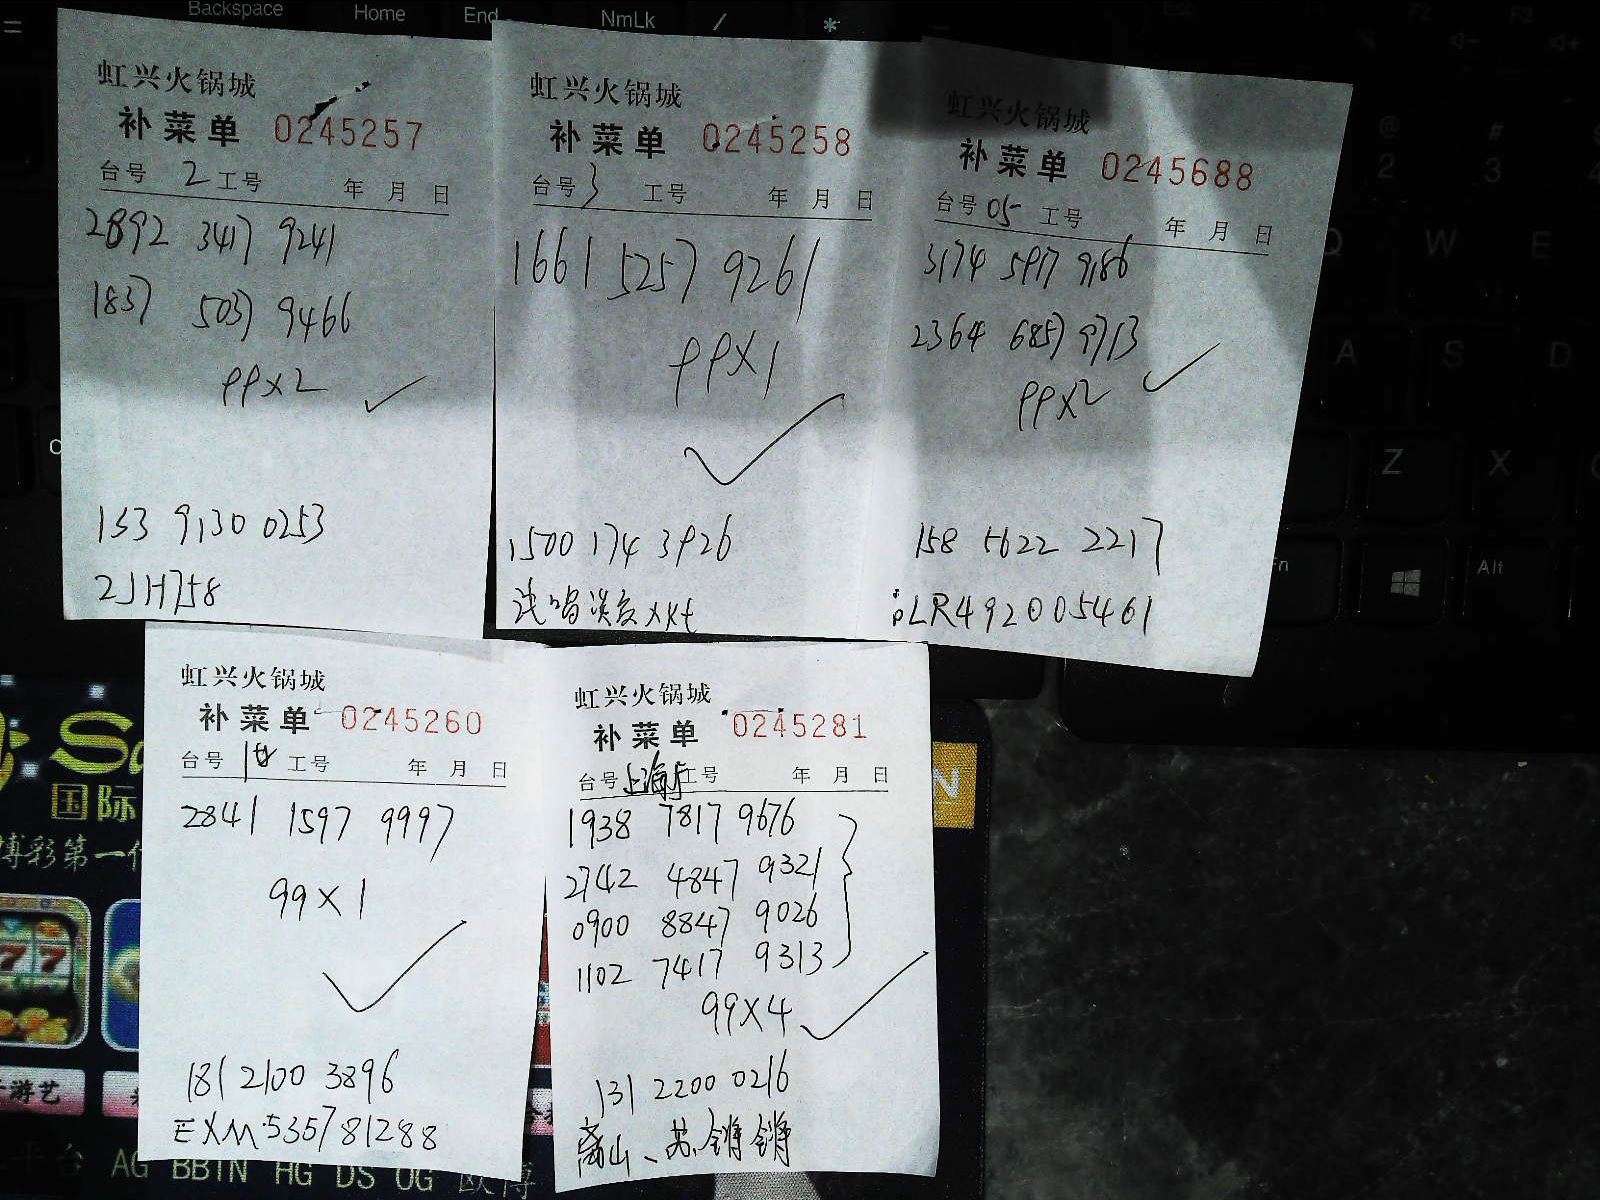 Backspace Home End NmLk / *
虹兴火锅城
补菜单 0245257
台号 2 工号 年 月 日
2892 3417 9241
1837 5037 9466
99X2
153 9130 0253
2JH758
虹兴火锅城
补菜单 0245258
台号 3 工号 年 月 日
1661 5257 9261
99X1
1500 174 3926
虹兴火锅城
补菜单 0245688
台号 05 工号 年 月 日
3174 5917 9186
2364 6857 9713
99X2
158 5622 2217
LR492005461
@ 2 # 3
Q W E
A S D
Z X
Alt
虹兴火锅城
补菜单 0245260
台号 工号 年 月 日
2841 1597 9997
99X1
181 2100 3896
EXM535781288
虹兴火锅城
补菜单 0245281
台号 上海厅 工号 年 月 日
1938 7817 9676
2742 4847 9321
0900 8847 9026
1102 7417 9313
99X4
131 2200 0216
国际
博彩第一
77
游艺
平台 AG BBIN HG DS OG 欧博
N